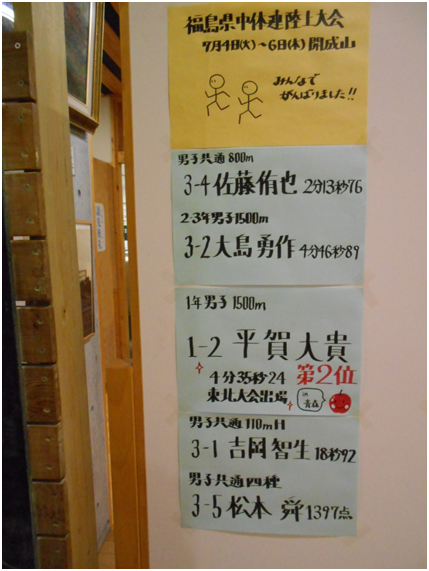 福島県中体連陸上大会
7月4日(火)~6日(木) 開成山
みんなで
がんばりました!!
男子共通 800m
3-4 佐藤侑也 2分13秒76
2・3年男子1500m
3-2 大島勇作 4分46秒89
1年男子 1500m
1-2 平賀大貴
4分35秒24 第2位
東北大会出場 in 青森
男子共通 110mH
3-1 吉岡智生 18秒92
男子共通四種
3-5 松本 舜 1397点